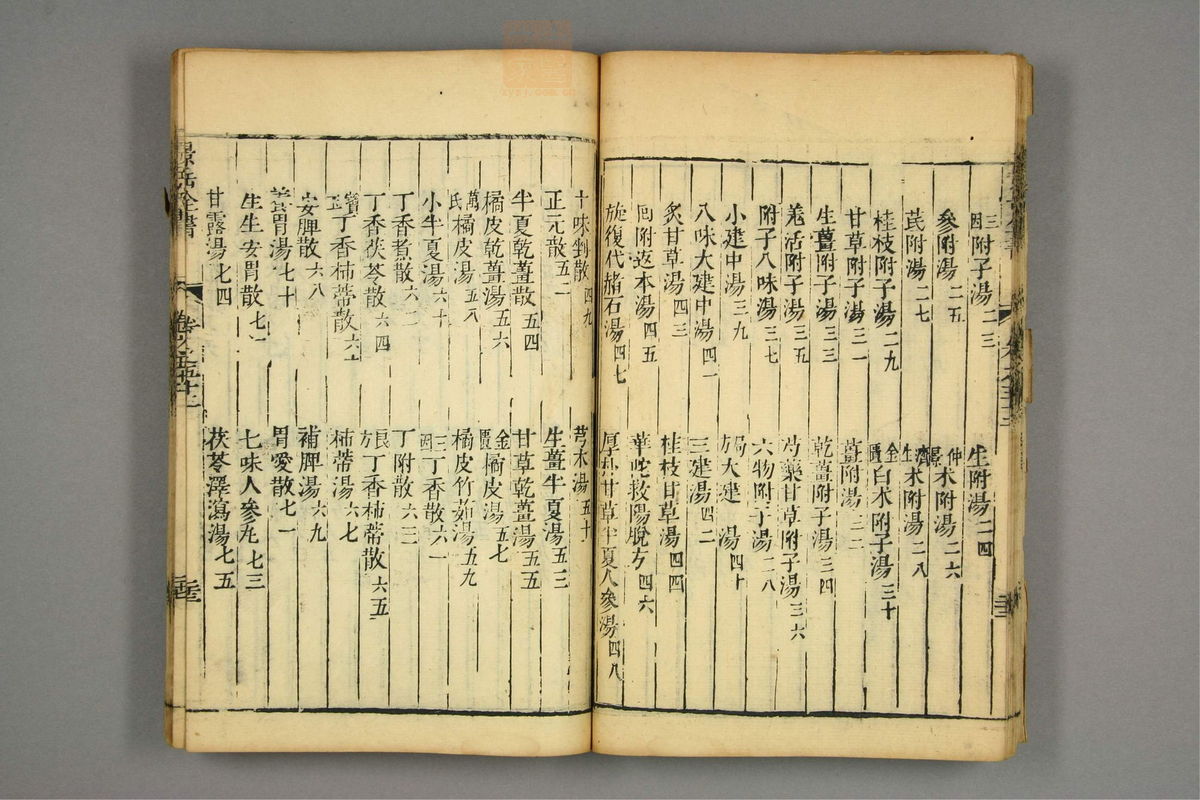 三因附子湯二三　生附湯二四
參附湯二五　仲景术附湯二六
芪附湯二七　濟生术附湯二八
桂枝附子湯二九　金匱白术附子湯三十
甘草附子湯三一　薑附湯三二
生薑附子湯三三　乾薑附子湯三四
羗活附子湯三五　芍藥甘草附子湯三六
附子八味湯三七　六物附子湯三八
小建中湯三九　局方大建湯四十
八味大建中湯四一　三建湯四二
炙甘草湯四三　桂枝甘草湯四四
囘附返本湯四五　華陀救陽脫方四六
旋復代赭石湯四七　厚朴甘草半夏人參湯四八
十味剉散四九　芎术湯五十
正元散五二　生薑半夏湯五三
半夏乾薑散五四　甘草乾薑湯五五
橘皮乾薑湯五六　金匱橘皮湯五七
萬氏橘皮湯五八　橘皮竹茹湯五九
小半夏湯六十　三因丁香散六一
丁香煮散六二　丁附散六三
丁香茯苓散六四　良方丁香柿蒂散六五
寶鑑丁香柿蒂散六六　柿蒂湯六七
安脾散六八　補脾湯六九
養胃湯七十　胃愛散七一
生生安胃散七二　七味人參丸七三
甘露湯七四　茯苓澤瀉湯七五
景岳全書
卷之五十三